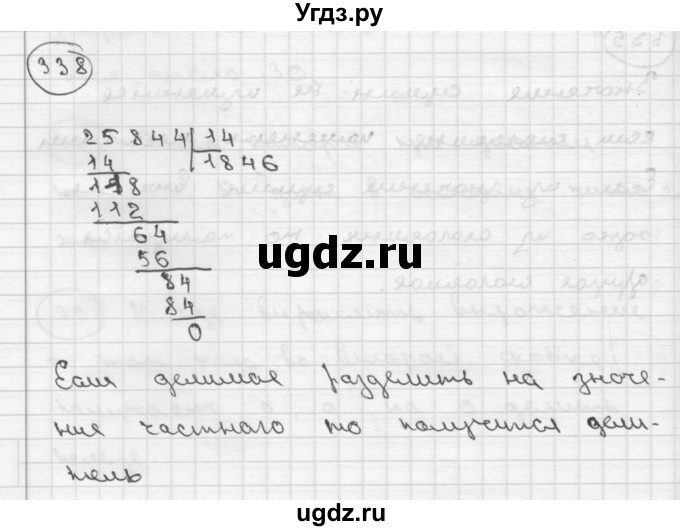 Угдз.ру
338
25844 14
14 1846
118
112
64
56
84
84
0
ugdz.ru
Если делимое разделить на значе-
ние частного то получится дели-
тель
ugdz.ru